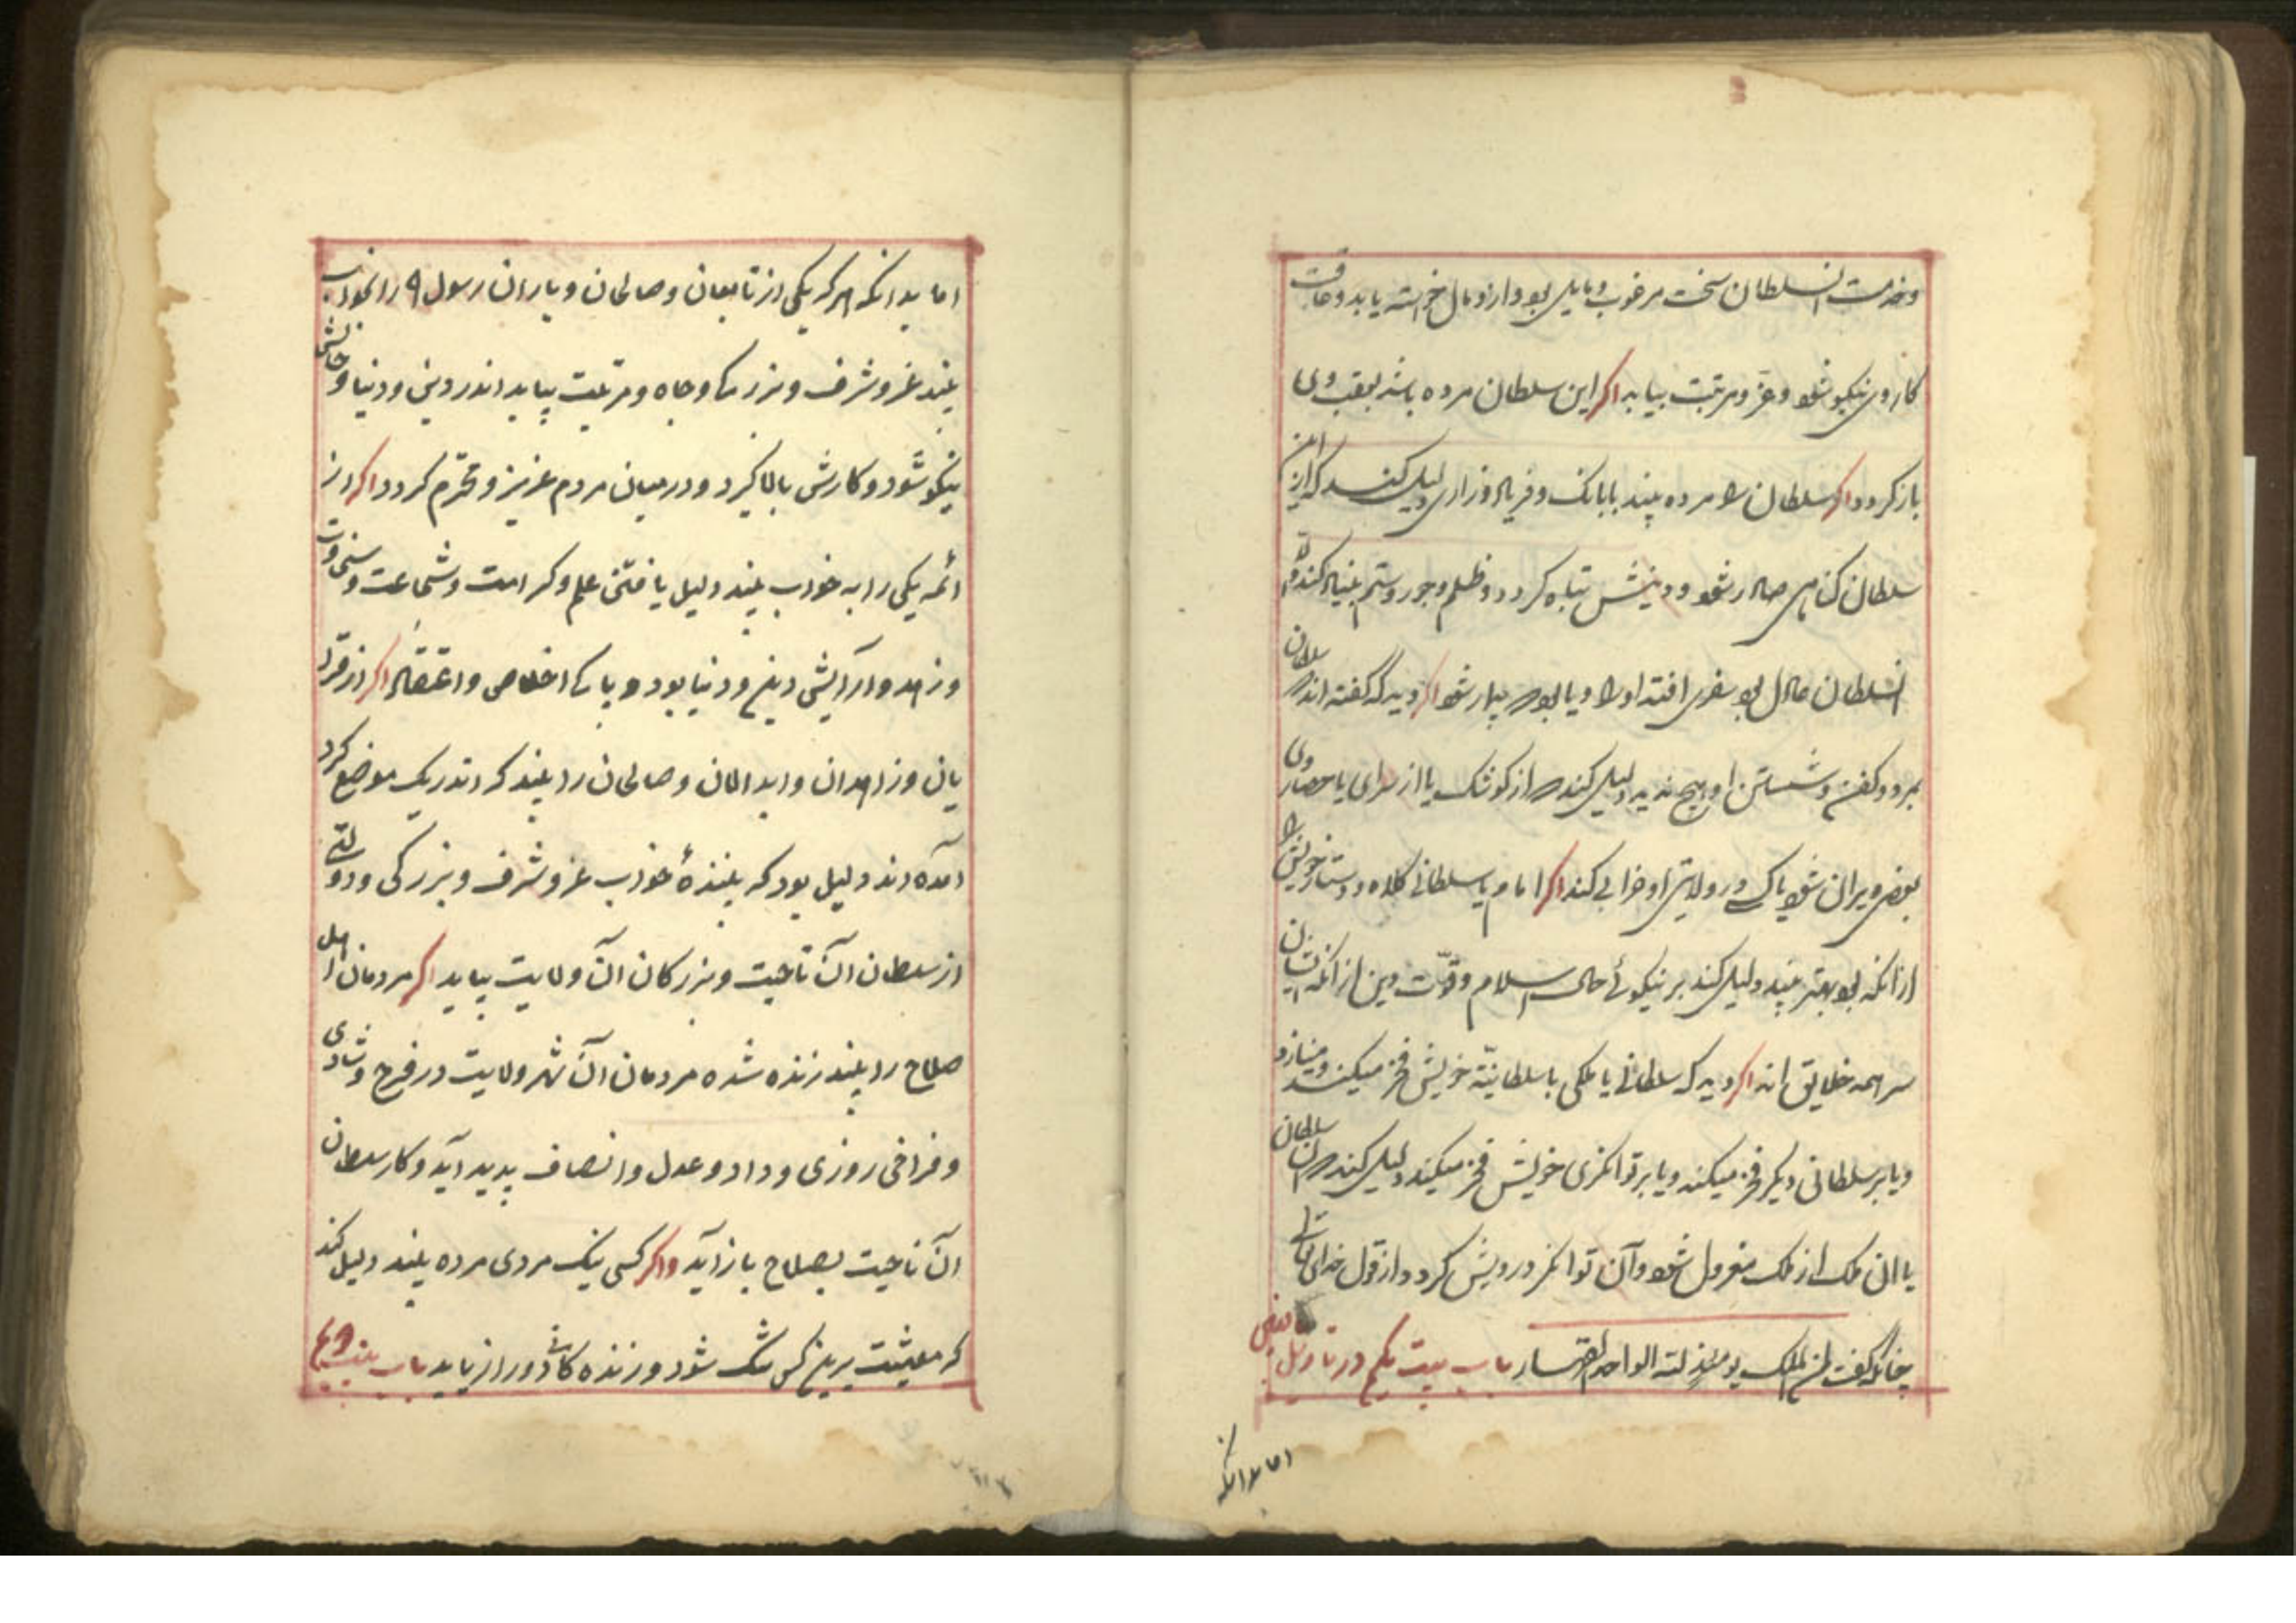 و خدمت آن سلطان سخت مرغوب و مایل بود و ازو مال خواسته یابد و عاقبت
کار وی نیکو شود و عز و مرتبت بیابد اکر این سلطان مرده باشد بعقب وی
باز کردد اکر سلطان را مرده بیند با بانک و فریاد و زاری دلیل کند که از این
سلطان کناهی صادر شود و دینش تباه کردد و ظلم و جور و ستم بنیاد کند و اگر
آن سلطان عادل بود سفری افتد او را و یا بود که بیمار شود اکر دید که گفته اند که سلطان
بمرد و کفن و شستن او هیچ ندید دلیل کند که از کوشک یا از سرای یا حصار وی
بعضی ویران شود یا کسی در ولایتی او خرابی کند اکر امام یا سلطانی کلاه و دستار خویش را
از آنکه بود بهتر بیند دلیل کند بر نیکوئی حال اسلام و قوّت دین از آنکه ایشان
سر همه خلایق اند اکر دید که سلطانی یا ملکی با سلطانیّة خویش فخر میکند و مینازد
و یا بر سلطانی دیکر فخر میکند و یا بر توانکری خویش فخر میکند دلیل کند که آن سلطان
یا آن ملک از ملک معزول شود و آن توانکر درویش کردد از قول خدای تعالی
چنانکه گفت لمن الملک یومئذ لله الواحد القهار باب بیست یکم در تاویل
اما بدانکه
اما بدانکه هر که یکی از تابعان و صالحان و یاران رسول ۹ را بخواب
بیند عز و شرف و بزرکی و جاه و مرتبت بیابد اندر دین و دنیا و حالش
نیکو شود و کارش بالا کیرد و در میان مردم عزیز و محترم کردد اکر از
ائمه یکی را به خواب بیند دلیل یافتن علم و کرامت و شجاعت و سخاوت
و زهد و آرایش دین و دنیا بود و پاکی اخلاص و اعتقاد اکر از قرا
یان و زاهدان و ابدالان و صالحان را بیند که اندر یک موضع کرد
آمده اند دلیل بود که بینندهٔ خواب عز و شرف و بزرکی و دولتی
از سلطان آن ناحیت و بزرکان آن ولایت بیابد اکر مردمان اهل
صلاح را بیند زنده شده مردمان آن شهر و ولایت در فرح و شادی
و فراخی روزی و داد و عدل و انصاف پدید آید و کار سلطان
آن ناحیت بصلاح باز آید و اکر کسی نیک مردی مرده بیند دلیل کند
که معیشت برین کس تنک شود و زنده کانی دور از یابد باب بیست